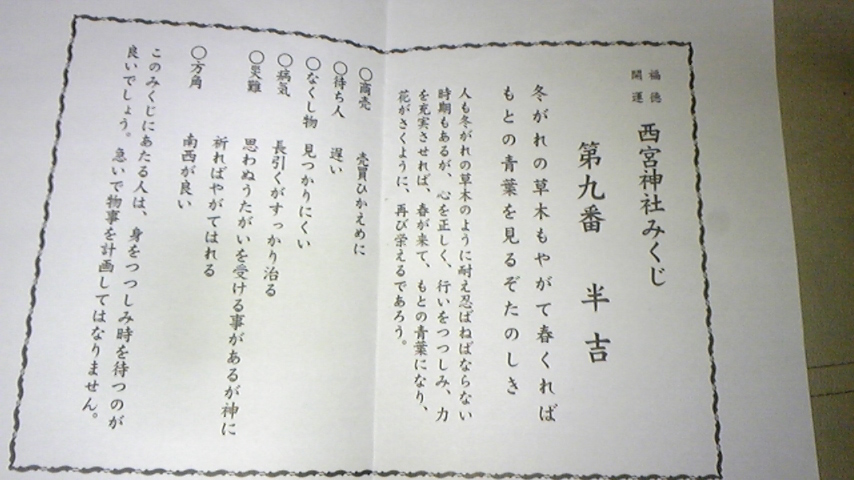 福徳
開運
西宮神社みくじ
第九番 半吉
冬がれの草木もやがて春くれば
もとの青葉を見るぞたのしき
人も冬がれの草木のように耐え忍ばねばならない
時期もあるが、心を正しく、行いをつつしみ、力
を充実させれば、春が来て、もとの青葉になり、
花がさくように、再び栄えるであろう。
○商売 売買ひかえめに
○待ち人 遅い
○なくし物 見つかりにくい
○病気 長引くがすっかり治る
○災難 思わぬうたがいを受ける事があるが神に
祈ればやがてはれる
○方角 南西が良い
このみくじにあたる人は、身をつつしみ時を待つのが
良いでしょう。急いで物事を計画してはなりません。